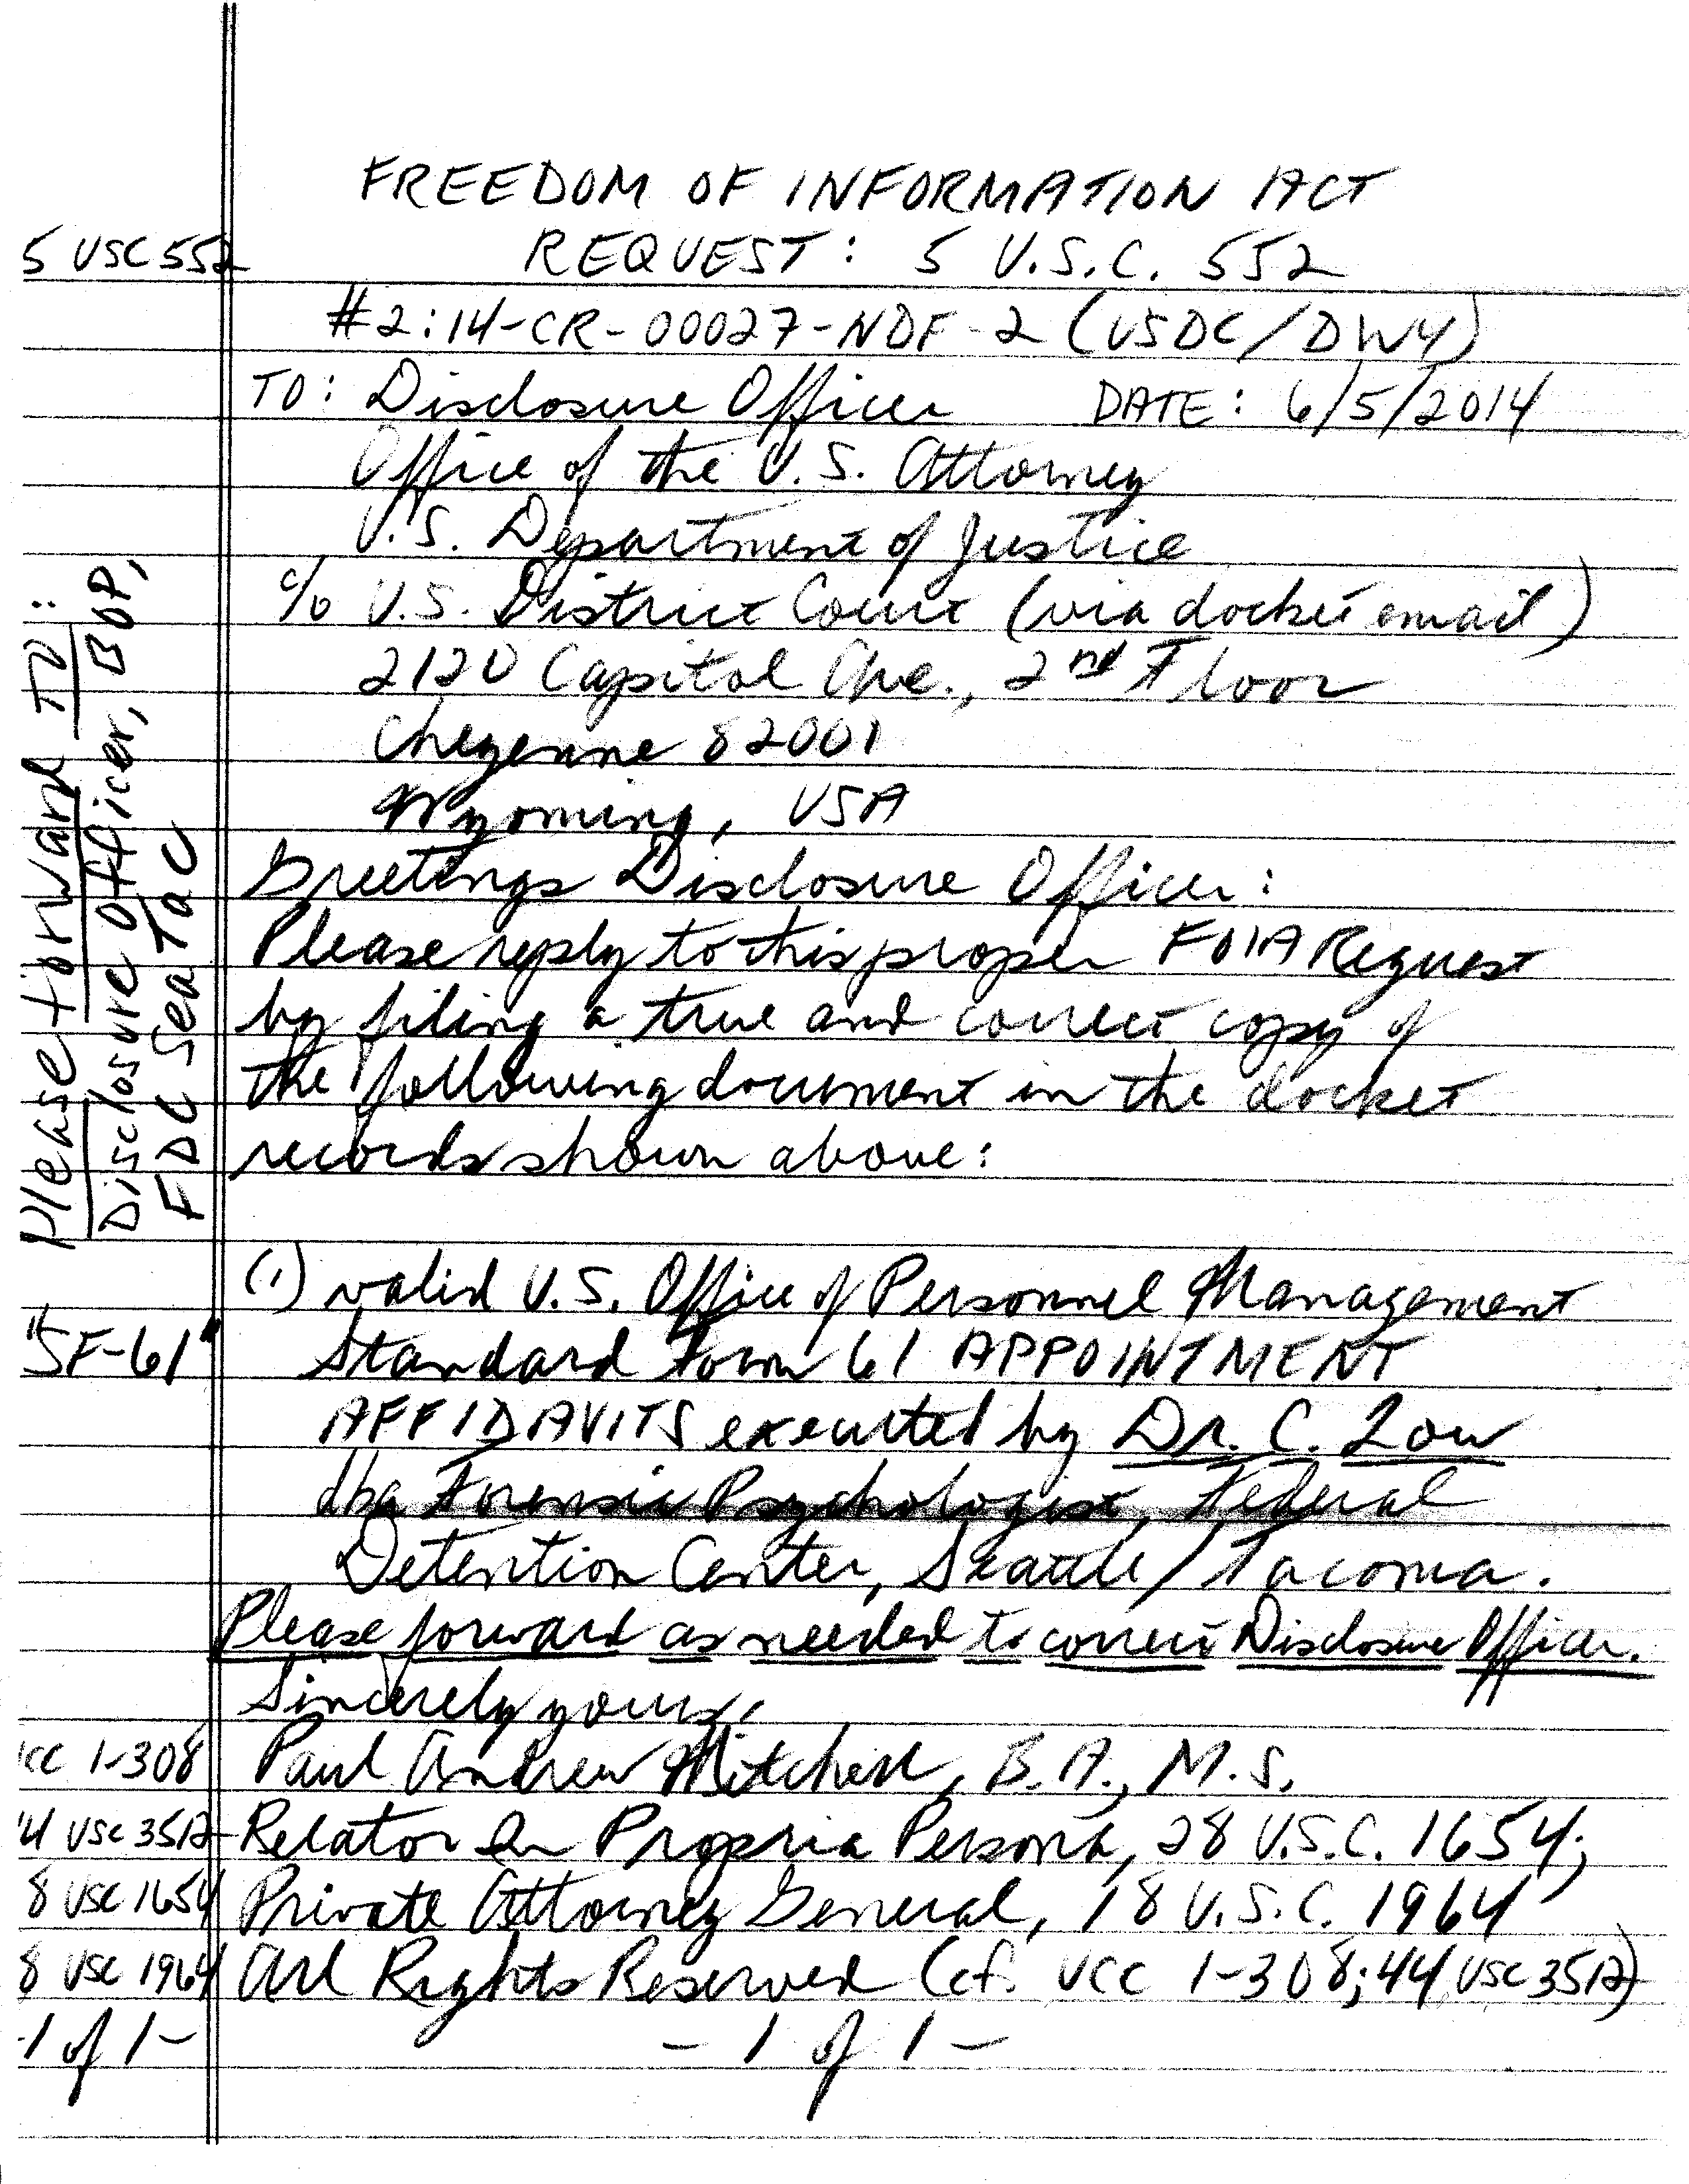 FREEDOM OF INFORMATION ACT
5 USC 552 REQUEST: 5 U.S.C. 552
#2:14-CR-00027-NDF-2 (USDC/DWY)
TO: Disclosure Officer DATE: 6/5/2014
Office of the U.S. Attorney
U.S. Department of Justice
c/o U.S. District Court (via docket email)
2120 Capitol Ave., 2nd Floor
Cheyenne 82001
Wyoming, USA
Please forward TO:
Disclosure Officer, BOP,
FDC SeaTac
Greetings Disclosure Officer:
Please reply to this proper FOIA Request
by filing a true and correct copy of
the following document in the docket
records shown above:
(1) valid U.S. Office of Personnel Management
"SF-61" Standard Form 61 APPOINTMENT
AFFIDAVITS executed by Dr. C. Low
dba Forensic Psychologist, Federal
Detention Center, Seattle/Tacoma.
Please forward as needed to correct Disclosure Officer.
Sincerely yours,
CC 1-308 Paul Andrew Mitchell, B.A., M.S.
4 USC 3512 Relator In Propria Persona, 28 U.S.C. 1654;
8 USC 1654 Private Attorney General, 18 U.S.C. 1964
8 USC 1964 All Rights Reserved (cf. UCC 1-308; 44 USC 3512)
-1 of 1- - 1 of 1 -